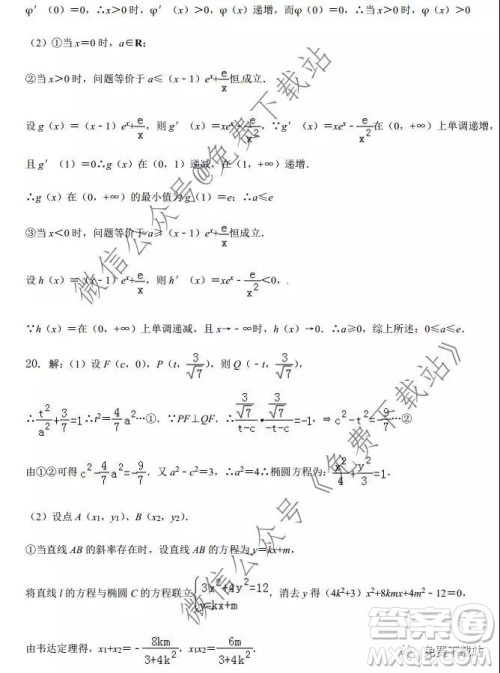 φ′（0）=0，∴x＞0时，φ′（x）＞0，φ（x）递增，而φ（0）=0，∴当x＞0时，φ（x）＞0
（2）①当x=0时，a∈R；
②当x＞0时，问题等价于a≤（x﹣1）eˣ+e/x恒成立．
设g（x）=（x﹣1）eˣ+e/x，则g′（x）=xeˣ﹣e/x²，∵g′（x）=xeˣ﹣e/x²在（0，+∞）上单调递增，
且g′（1）=0∴g（x）在（0，1）递减，在（1，+∞）递增．
∴g（x）在（0，+∞）的最小值为g（1）=e；∴a≤e
③当x＜0时，问题等价于a≥（x﹣1）eˣ+e/x恒成立．
设h（x）=（x﹣1）eˣ+e/x，则h′（x）=xeˣ﹣e/x²＜0，
∵h（x）=在（0，+∞）上单调递减，且x→﹣∞时，h（x）→0．∴a≥0，综上所述：0≤a≤e．
20．解：（1）设F（c，0），P（t，3/√7），则Q（﹣t，3/√7），
∴t²/a²+3/7=1∴t²=4/7a²…①．∵PF⊥QF．∴(3/√7)/(t-c)•(3/√7)/(-t-c)=-1，⇒c²-t²=-9/7…②
由①②可得c²-4/7a²=-9/7．又a²﹣c²=3，∴a²=4∴椭圆方程为：x²/4+y²/3=1．
（2）设点A（x₁，y₁）、B（x₂，y₂）．
①当直线AB的斜率存在时，设直线AB的方程为y=kx+m，
将直线l的方程与椭圆C的方程联立{3x²+4y²=12，y=kx+m，消去y得（4k²+3）x²+8kmx+4m²﹣12=0，
由韦达定理得，x₁+x₂=﹣8km/(3+4k²)，x₁x₂=6m/(3+4k²)．
微信公众号@免费下载站
微信公众号《免费下载站》
答案圈
免费下载站